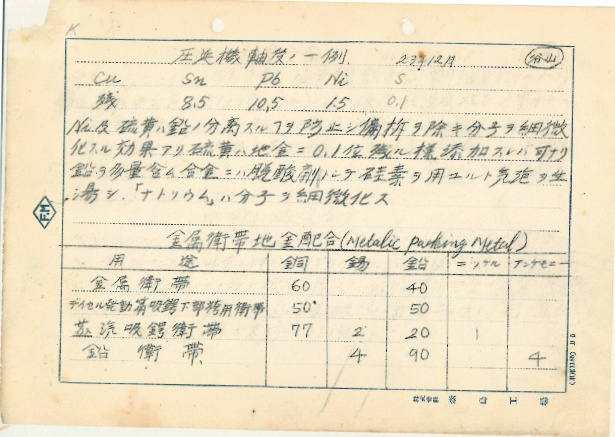 K
圧延機軸受ノ一例 23年12月 谷山
Cu Sn Pb Ni S
残 8.5 10.5 1.5 0.1
Ni及硫黄ハ鉛ノ分離スルヲ防止シ偏析ヲ除キ分子ヲ細微
化スル効果アリ硫黄ハ地金ニ0.1位残ル様添加スレバ可ナリ
鉛ヲ多量含ム合金ニハ脱酸剤トシテ硅素ヲ用ユルト気泡ヲ生
ジ、「ナトリウム」ハ分子ヲ細微化ス
金属衛帯地金配合(Metalic Parking Metal)
用途 銅 錫 鉛 ニッケル アンチモニー
金属衛帯 60 40
デイセル発動 吸鍔下部 用衛帯 50 50
蒸汽吸鍔衛帯 77 2 20 1
鉛衛帯 4 90 4
F.M
株式会社 工